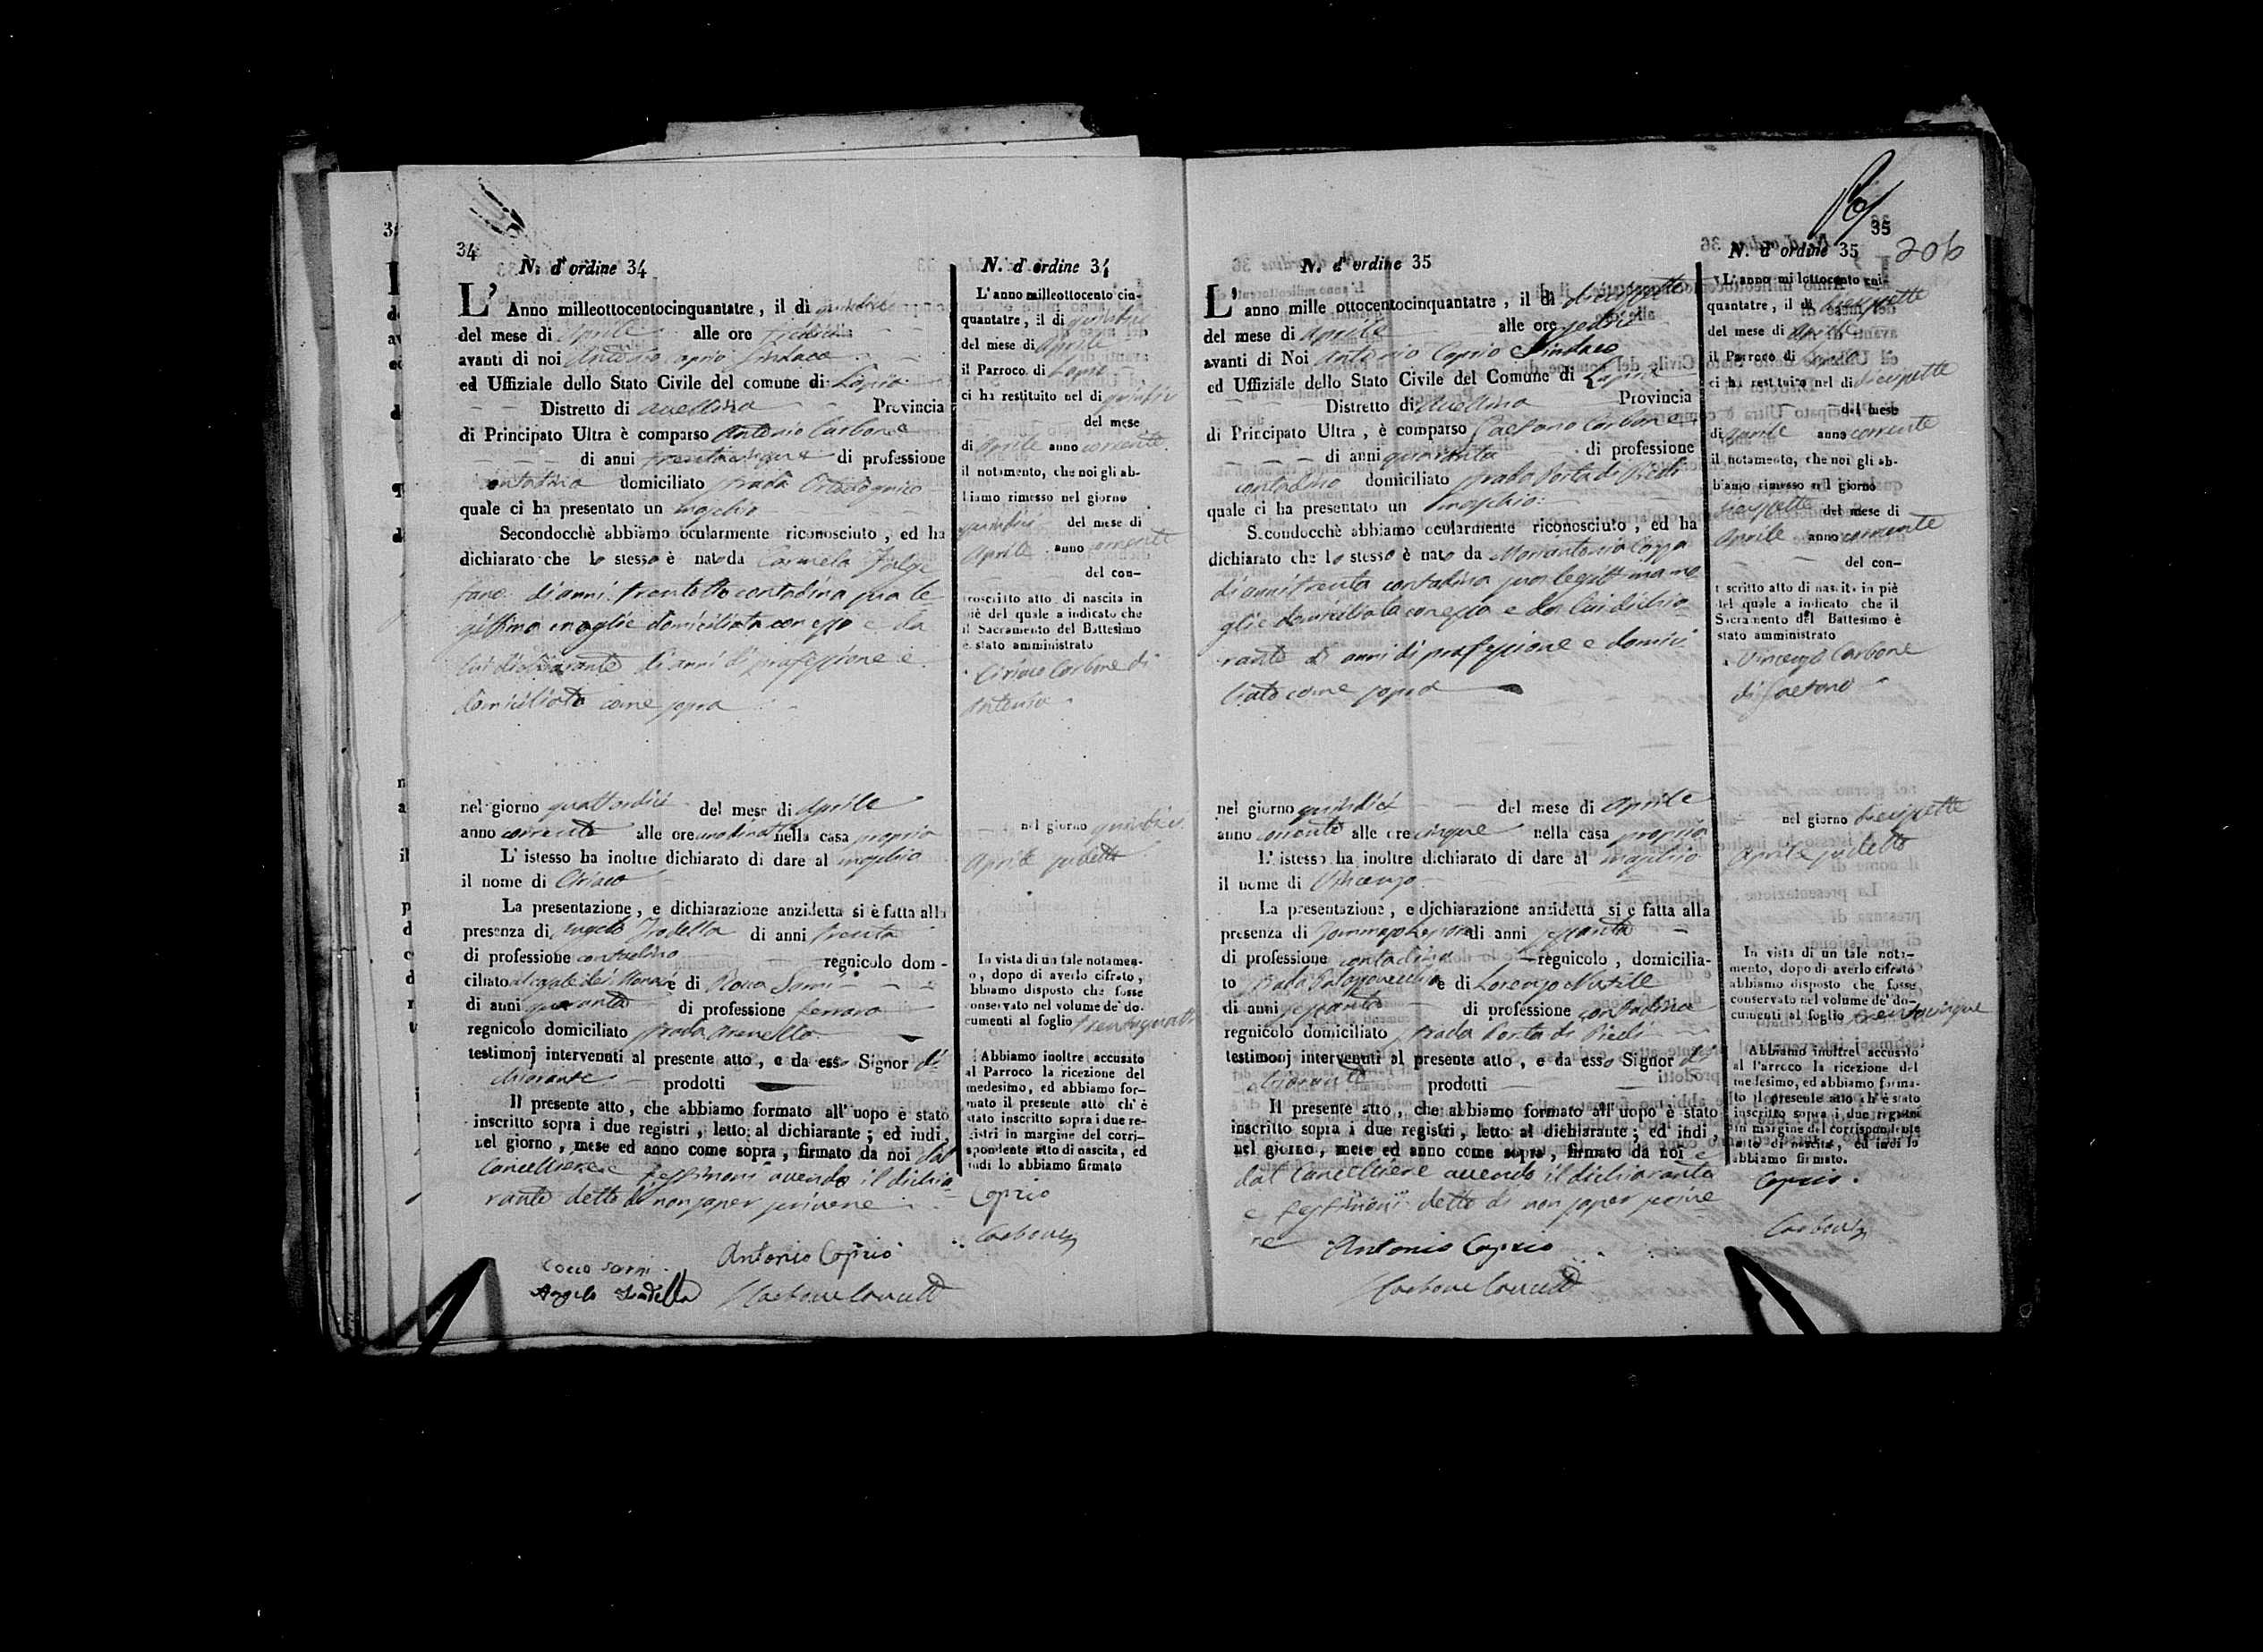 34
N. d'ordine 34
L' Anno milleottocentocinquantatre, il dì quindici
del mese di Aprile alle ore
avanti di noi Antonio Caprio Sindaco
ed Uffiziale dello Stato Civile del comune di Lapio
Distretto di Avellino Provincia
di Principato Ultra è comparso Antonio Carbone
di anni trentacinque di professione
contadino domiciliato strada
quale ci ha presentato un maschio
Secondocchè abbiamo ocularmente riconosciuto, ed ha
dichiarato che lo stesso è nato da Carmela
di anni trentotto contadina sua le-
gittima moglie domiciliata con esso e da
lui dichiarante di anni di professione e
domiciliato come sopra
nel giorno quattordici del mese di Aprile
anno corrente alle ore nella casa propria
L' istesso ha inoltre dichiarato di dare al maschio
il nome di Ciriaco
La presentazione, e dichiarazione anzidetta si è fatta alla
presenza di Angelo di anni trenta
di professione contadino regnicolo dom-
ciliato e di Rocco Sarni
di anni quaranta di professione ferraro
regnicolo domiciliato strada
testimonj intervenuti al presente atto, e da esso Signor di-
chiarante prodotti
Il presente atto, che abbiamo formato all' uopo è stato
inscritto sopra i due registri, letto al dichiarante; ed indi,
nel giorno, mese ed anno come sopra, firmato da noi dal
Cancelliere e testimoni avendo il dichia-
rante detto di non saper scrivere
Antonio Caprio
Rocco Sarni
Angelo Carbone Cancell
N. d' ordine 34
L' anno milleottocento cin-
quantatre, il di quindici
del mese di Aprile
il Parroco di Lapio
ci ha restituito nel di quindici
del mese
di Aprile anno corrente
il notamento, che noi gli ab-
biamo rimesso nel giorno
quindici del mese di
Aprile anno corrente
del con-
troscritto atto di nascita in
piè del quale a indicato che
il Sacramento del Battesimo
è stato amministrato
Ciriaco Carbone di
Antonio
nel giorno quindici
Aprile suddetto
In vista di un tale notamen-
o, dopo di averlo cifrato,
bbiamo disposto che fosse
onservato nel volume de' do-
cumenti al foglio trentaquattro
Abbiamo inoltre accusato
al Parroco la ricezione del
medesimo, ed abbiamo for-
mato il presente atto ch' è
stato inscritto sopra i due re-
gistri in margine del corri-
spondente atto di nascita, ed
indi lo abbiamo firmato
Caprio
Carbone
35
206
N. d' ordine 35
L' anno mille ottocentocinquantatre, il dì diecisette
del mese di Aprile alle ore sedici
avanti di Noi Antonio Caprio Sindaco
ed Uffiziale dello Stato Civile del Comune di Lapio
Distretto di Avellino Provincia
di Principato Ultra, è comparso Gaetano Carbone
di anni quaranta di professione
contadino domiciliato strada Porta di Piedi
quale ci ha presentato un maschio
Secondocchè abbiamo ocularmente riconosciuto, ed ha
dichiarato che lo stesso è nato da Mariantonia
di anni trenta contadina sua legittima mo-
glie domiciliata con esso e da lui dichia-
rante di anni di professione e domici-
liato come sopra
nel giorno quindici del mese di Aprile
anno corrente alle ore cinque nella casa propria
L' istesso ha inoltre dichiarato di dare al maschio
il nome di Vincenzo
La presentazione, e dichiarazione anzidetta si è fatta alla
presenza di Tommaso di anni sessanta
di professione contadino regnicolo, domicilia-
to strada Palazzovecchio e di Lorenzo
di anni sessanta di professione contadino
regnicolo domiciliato strada Porta di Piedi
testimonj intervenuti al presente atto, e da esso Signor di-
chiarante prodotti
Il presente atto, che abbiamo formato all' uopo è stato
inscritto sopra i due registri, letto al dichiarante; ed indi,
nel giorno, mese ed anno come sopra, firmato da noi e
dal Cancelliere avendo il dichiarante
e testimoni detto di non saper scrive-
re Antonio Caprio
Carbone Cancell
N. d' ordine 35
L' anno millottocento cin-
quantatre, il di diecisette
del mese di Aprile
il Parroco di Lapio
ci ha restituito nel di diecisette
del mese
di Aprile anno corrente
il notamento, che noi gli ab-
biamo rimesso nel giorno
diecisette del mese di
Aprile anno corrente
del con-
t scritto atto di nascita in piè
del quale a indicato che il
Sacramento del Battesimo è
stato amministrato
Vincenzo Carbone
di Gaetano
nel giorno diecisette
Aprile suddetto
In vista di un tale nota-
mento, dopo di averlo cifrato
abbiamo disposto che fosse
conservato nel volume de' do-
cumenti al foglio trentacinque
Abbiamo inoltre accusato
al Parroco la ricezione del
medesimo, ed abbiamo forma-
to il presente atto ch' è stato
inscritto sopra i due registri
in margine del corrispondente
atto di nascita, ed indi lo
abbiamo firmato.
Caprio
Carbone